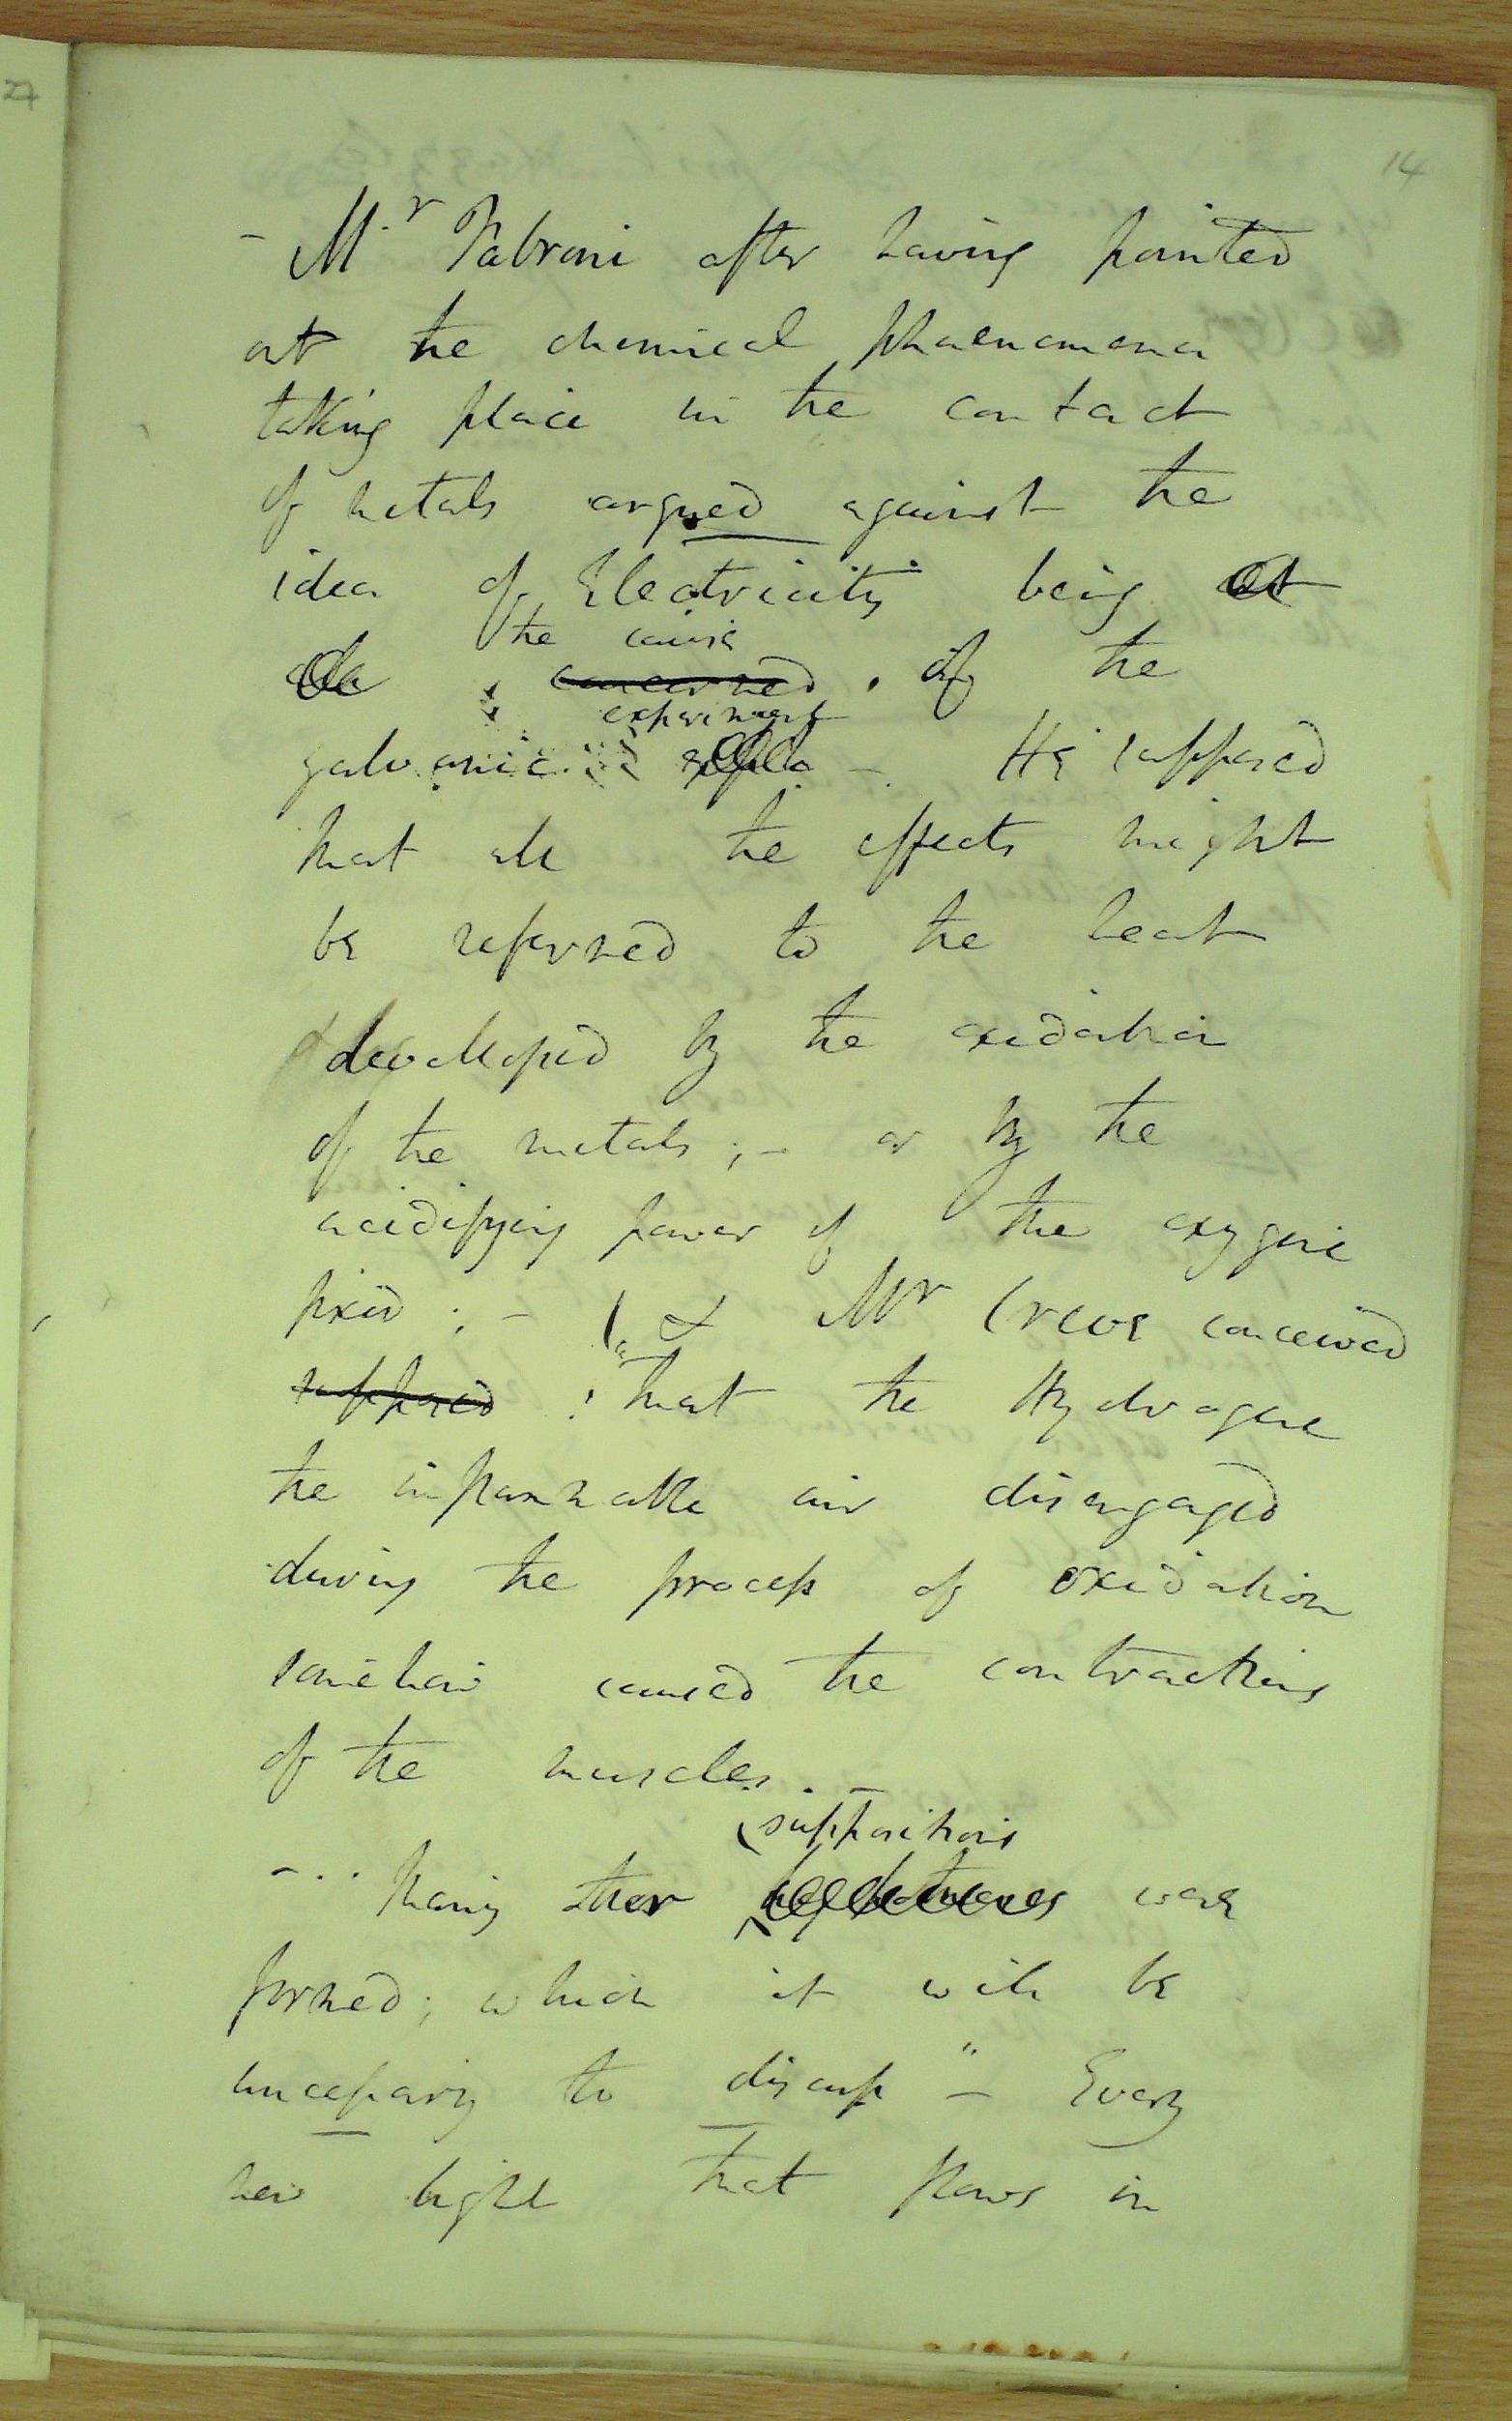 14
- Mr Fabroni after having pointed
out the chemical phaenomena
taking place in the contact
of metals argued against the
idea of Electricity being
the cause
concerned of the
experiment
galvanic - He supposed
that all the effects might
be referred to the heat
developed by the oxidation
of the metals; - or by the
acidifying power of the oxygene
fixed; - & Mr Creve conceived
supposed that the Hydrogene
the inflammable air disengaged
during the process of oxidation
somehow caused the contractions
of the muscles. -
suppositions
- .. Many other were
formed; which it will be
unecessary to discuss - Every
new light that flows in
27